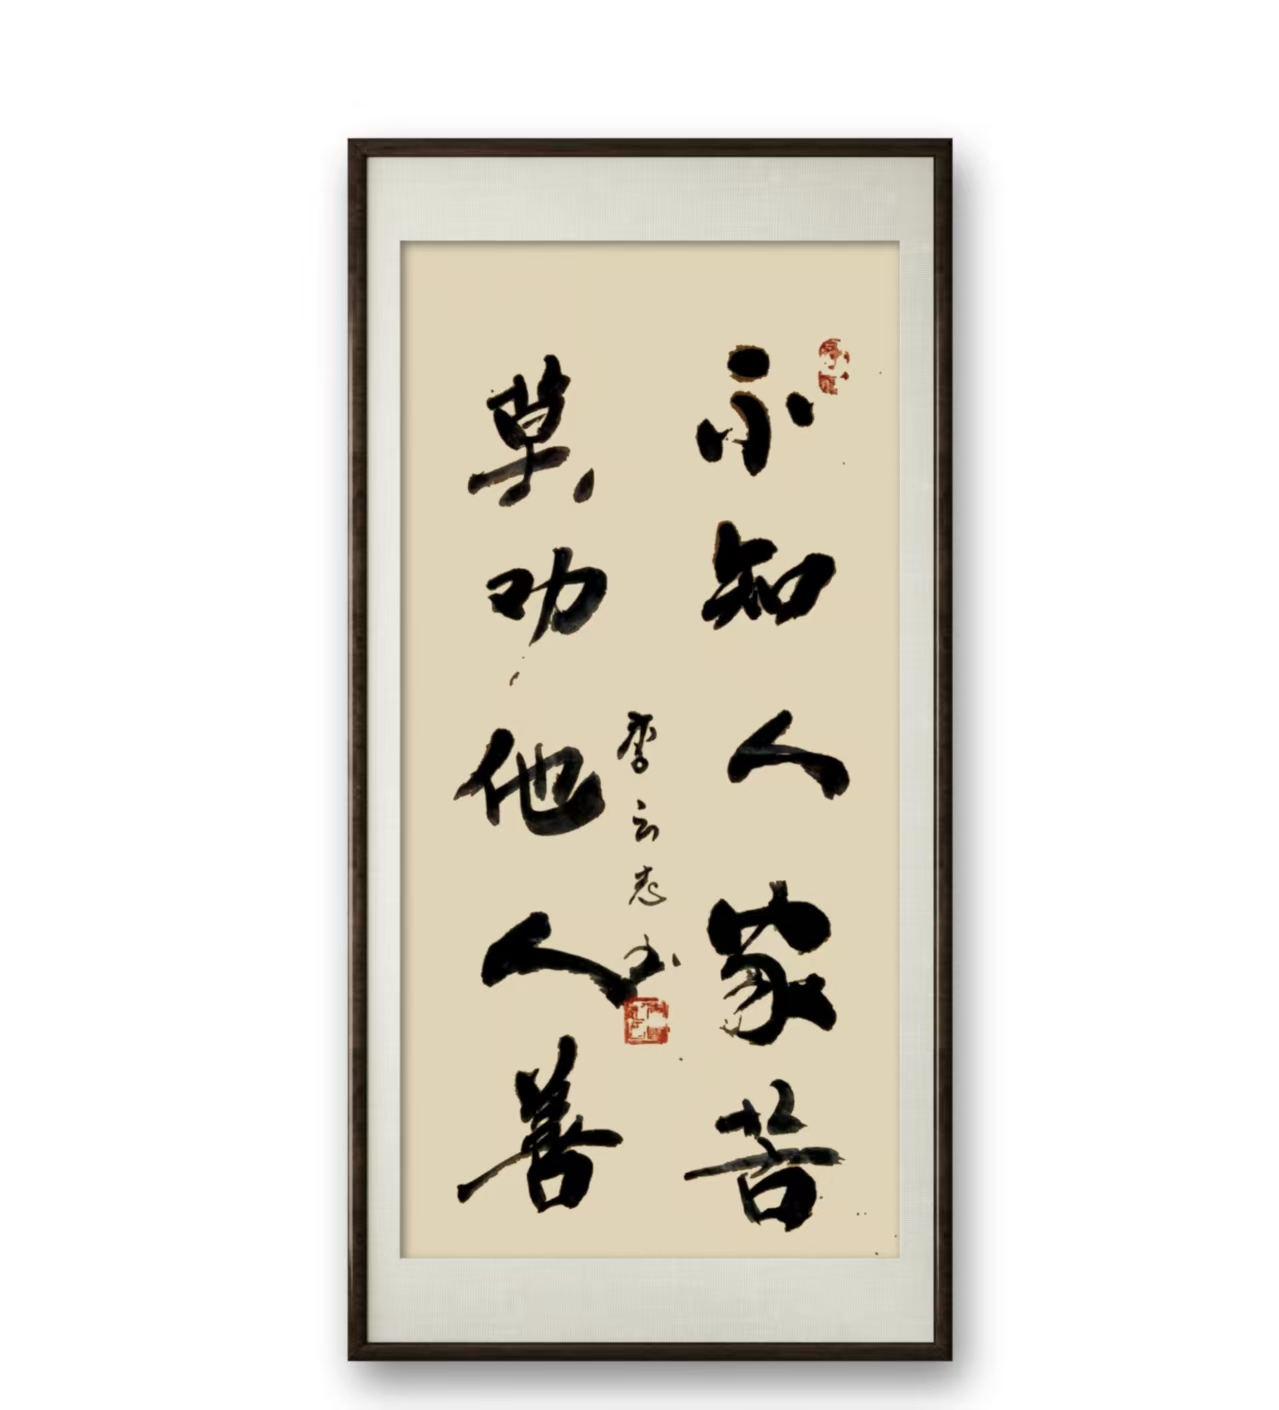 不知人家苦
莫劝他人善
李云志书